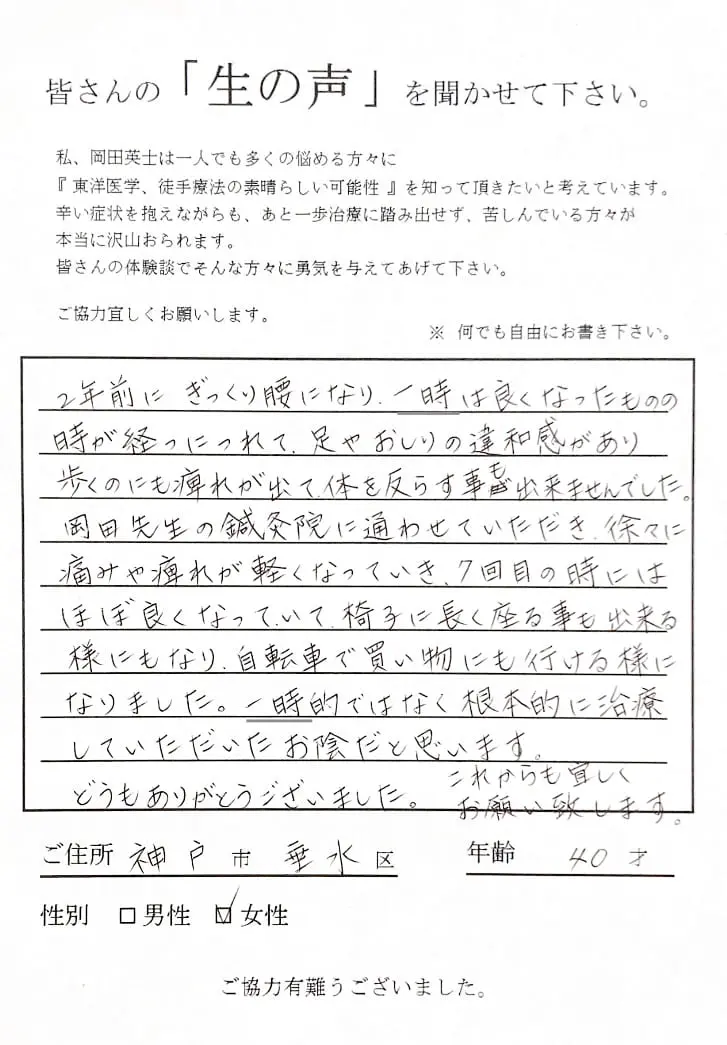 皆さんの「生の声」を聞かせて下さい。
私、岡田英士は一人でも多くの悩める方々に
『 東洋医学、徒手療法の素晴らしい可能性 』を知って頂きたいと考えています。
辛い症状を抱えながらも、あと一歩治療に踏み出せず、苦しんでいる方々が
本当に沢山おられます。
皆さんの体験談でそんな方々に勇気を与えてあげて下さい。
ご協力宜しくお願いします。
※ 何でも自由にお書き下さい。
2年前に ぎっくり腰になり、一時は良くなったものの
時が経つにつれて、足や おしりの違和感があり
歩くのにも痺れが出て、体を反らす事も出来ませんでした。
岡田先生の鍼灸院に通わせていただき、徐々に
痛みや痺れが軽くなっていき、7回目の時には
ほぼ良くなって、いて、椅子に長く座る事も出来る
様にもなり、自転車で買い物にも行ける様に
なりました。一時的ではなく根本的に治療
していただいたお陰だと思います。
どうもありがとうございました。
これからも宜しく
お願い致します。
ご住所 神戸市 垂水区
年齢 40才
性別 □男性 ☑女性
ご協力有難うございました。